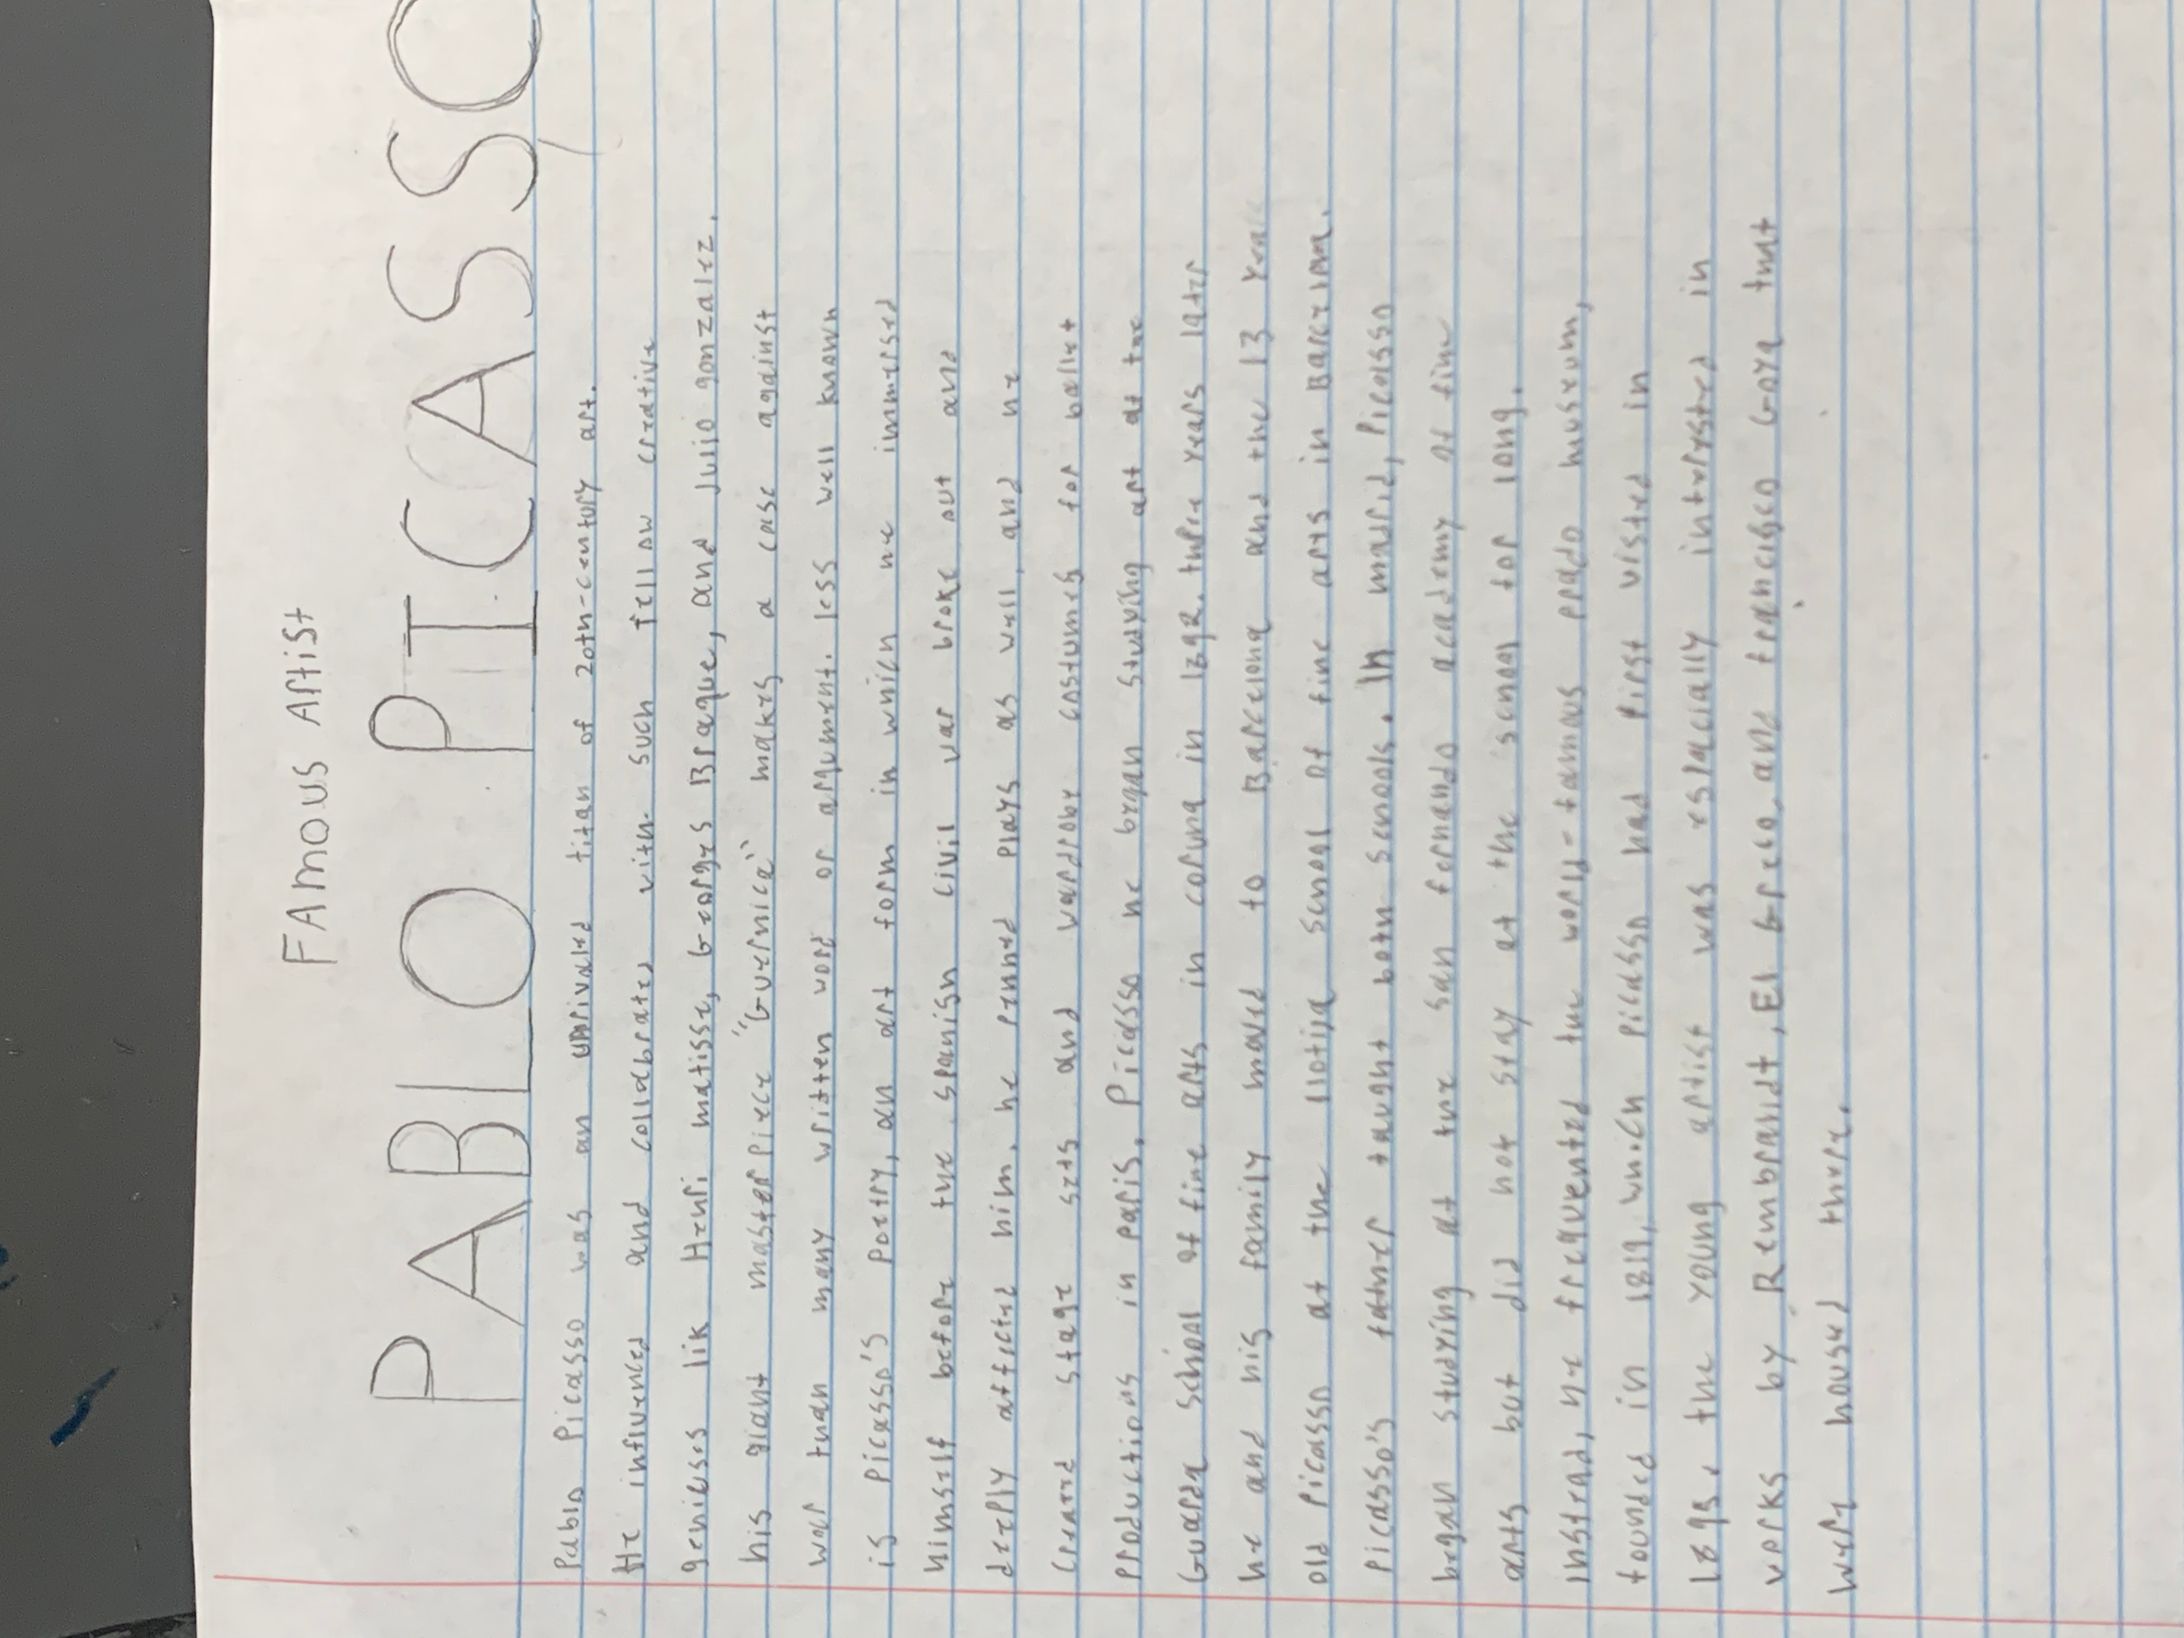 FAMOUS ARTIST
PABLO PICASSO
Pablo Picasso was an unrivaled titan of 20th-century art.
He influenced and collabprated with such fellow creative
geniuses lik Henri matisse, Georges Braque, and Julio gonzalez.
his giant masterpiece "Guernica" makes a case against
war than many written word or argument. less well known
is Picasso's poetry, an art form in which he immersed
himself before the spanish civil war broke out and
deeply affected him. he penned plays as well, and he
created stage sets and wardrobe costumes for ballet
productions in paris. Picasso he began studying art at the
Guarda School of fine arts in coruna in 1892. three years later
he and his family moved to Barcelona and the 13 years
old Picasso at the llotija school of fine arts in Barcelona.
Picasso's father taught both schools. In madrid, Picasso
began studying at the san fernando academy of fine
arts but did not stay at the school for long.
instead, he frequented the world-famous prado museum,
founded in 1819, which Picasso had first visted in
1895. the young artist was espacially interested in
works by Rembrandt, El Greco, and francisco Goya that
were housed there.